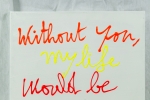 Without you,
my life
would be